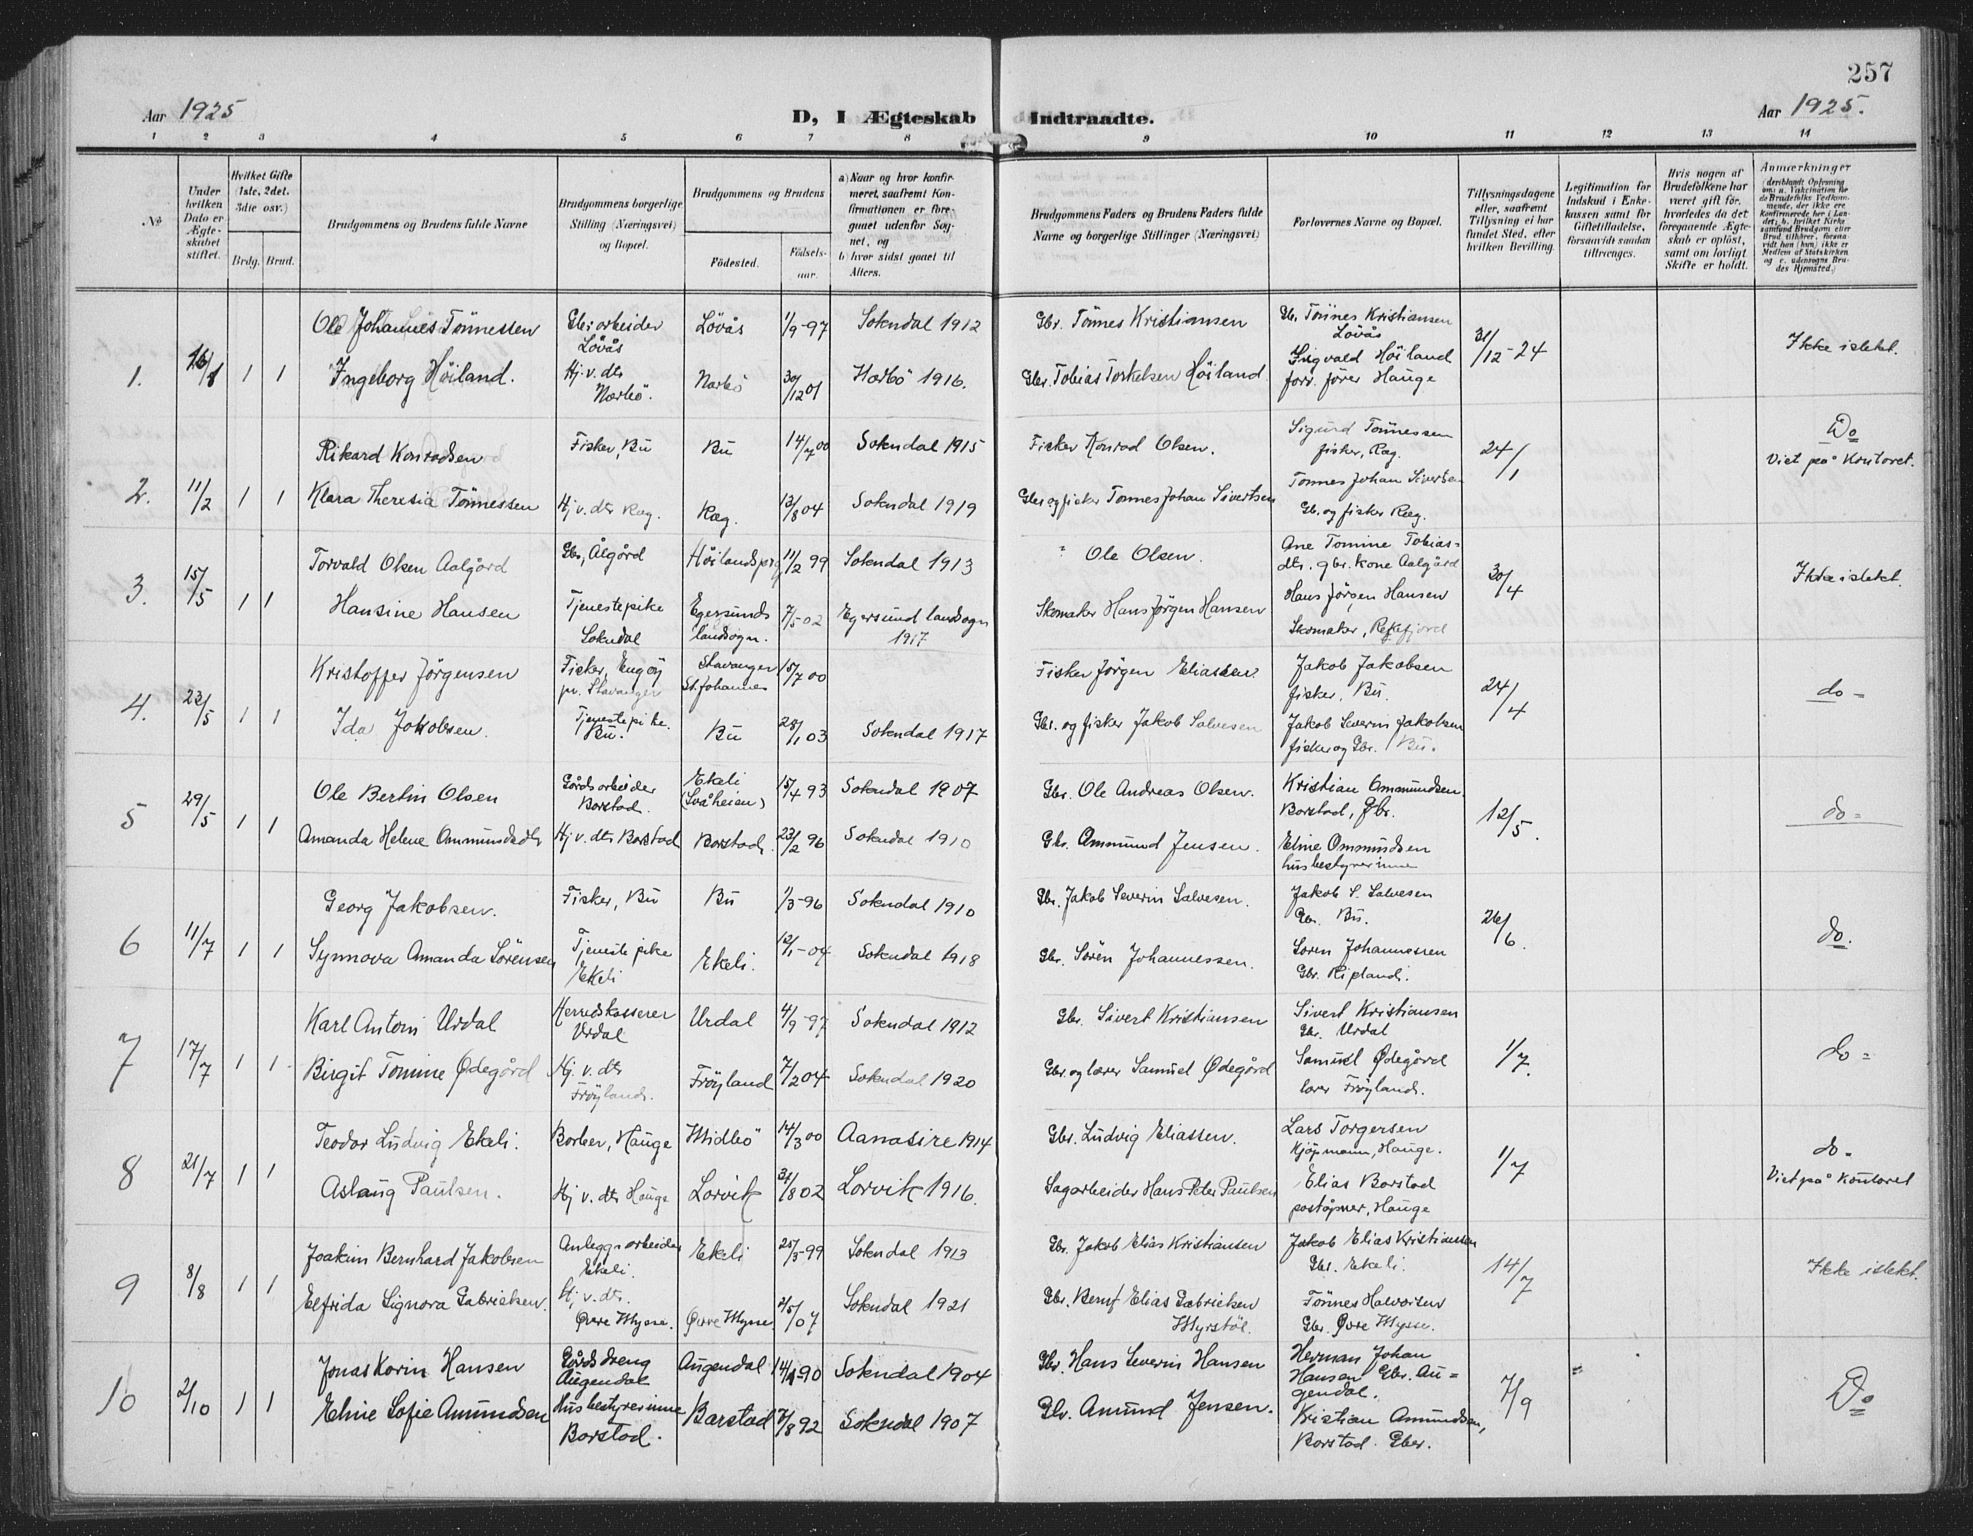 257
Aar 1925
D, I Ægteskab Indtraadte.
Aar 1925.
1 2 3 4 5 6 7 8 9 10 11 12 13 14
№
Under hvilken Dato er Ægteskabet stiftet.
Hvilket Gifte (1ste, 2det, 3die osv.)
Brdg. Brud.
Brudgommens og Brudens fulde Navne
Brudgommens borgerlige Stilling (Næringsvei) og Bopæl.
Brudgommens og Brudens
Födested.
Födselsaar.
a) Naar og hvor konfirmeret, saafremt Konfirmationen er foregaaet udenfor Sognet, og
b) hvor sidst gaaet til Alters.
Brudgommens Faders og Brudens Faders fulde Navne og borgerlige Stillinger (Næringsvei)
Forlovernes Navne og Bopæl.
Tillysningsdagene eller, saafremt Tillysning ei har fundet Sted, efter hvilken Bevilling.
Legitimation for Indskud i Enkekassen samt for Giftetilladelse, forsaavidt saadan tiltrænges.
Hvis nogen af Brudefolkene har været gift för, hvorledes da det foregaaende Ægteskab er oplöst, samt om lovligt Skifte er holdt.
Anmærkninger
1. 16/1 1 1
Ole Johannes Tönnessen Gbr.arbeider Löväs Löväs 1/9-97 Sokndal 1912 Gbr. Tönnes Kristiansen Gb. Tönnes Kristiansen Löväs 31/12-24 Ikke islekt.
Ingeborg Höiland. Hj. v. des Nærbö. Nærbö 30/12 01 Hærbö 1916. Gbr. Tobias Torkelsen Höiland Sigvald Höiland forr. fører Hauge
2. 11/2 1 1
Rikard Konradsen Fisker, Bu Bu 14/7 00 Sokndal 1915 Fisker Konrad Olsen. Sigurd Tönnessen fisker, Ræg. 24/1 Do Viet på Kontoret.
Klara Theresia Tönnessen Hj. v. des Ræg. Ræg. 13/8 04 Sokndal 1919 Gbr. og fisker Tönnes Johan Sivertsen Tönnes Johan Sivertsen Gb. og fisker Ræg.
3. 15/5 1 1
Torvald Olsen Aalgård Gbr, Ålgård Höilandspr 11/2 99 Sokndal 1913 " Ole Olsen. Ane Tomine Tobiasdtr. gbr. kone Aalgård 30/4 Ikke islekt.
Hansine Hansen Tjenestepike Sokndal Egersunds landsogn. 7/5 02 Egersund landsogn 1917 Skomaker Hans Jørgen Hansen Hans Jørgen Hansen Skomaker, Rekefjord
4. 23/5 1 1
Kristoffer Jørgensen Fisker, Engöy pr. Stavanger Stavanger St. Johannes 15/7 00 Fisker Jörgen Eliassen Jakob Jakobsen fisker, Bu. 24/4 do -
Ida Jakobsen. Tjenestepike. Bu. Bu 28/1 03 Sokndal 1917 Gbr. og fisker Jakob Salvesen Jakob Severin Jakobsen fisker og Gbr. Bu.
5 29/5 1 1
Ole Bertin Olsen Gårdsarbeider Barstad. Ekeli (Svåheien) 15/4 93 Sokndal 1907 Gbr. Ole Andreas Olsen. Kristian Ommundsen Barstad, Gbr. 12/5. do -
Amanda Helene Ommundsdtr Hj. v. des Barstad Barstad. 23/2 96 Sokndal 1910 Gbr. Ommund Jensen. Eline Ommundsen husbestyrerinne
6 11/7 1 1
Georg Jakobsen. Fisker, Bu Bu 1/3-96 Sokndal 1910 Gbr. Jakob Severin Salvesen. Jakob S. Salvesen Gbr. Bu. 26/6. do.
Synnova Amanda Sörensen Tjenestepike Ekeli Ekeli. 12/1-04 Sokndal 1918 Gbr. Sören Johannessen. Sören Johannessen Gbr. Ripland.
7 17/7 1 1
Karl Antoni Urdal Herredskasserer Urdal Urdal 4/9-97 Sokndal 1912 Gbr. Sivert Kristiansen Sivert Kristiansen Gbr. Urdal 1/7. do -
Birgit Tomine Ødegård Hj. v. des Fröyland. Fröyland 7/2 04 Sokndal 1920 Gbr. og lærer Samuel Ødegård Samuel Ødegård lærer Fröyland.
8 21/7 1 1
Teodor Ludvig Ekeli. Barber, Hauge Midbö 14/3 00 Aanasire 1914 Gbr. Ludvig Eliassen. Lars Torgersen Kjöpmann, Hauge. 1/7 do - Viet på Kontoret
Aslaug Paulsen. Hj. v. des Hauge Larvik 31/8 02 Larvik 1916. Sagarbeider Hans Peter Paulsen Elias Barstad poståpner, Hauge
9 8/8 1 1
Joakim Bernhard Jakobsen Anleggsarbeider Ekeli. Ekeli 25/3-99 Sokndal 1913 Gbr. Jakob Elias Kristiansen Jakob Elias Kristiansen Gbr. Ekeli. 14/7 Ikke islekt.
Elfrida Signora Gabrielsen. Hj. v. des. Øvre Mysse. Øvre Mysse. 2/5/07 Sokndal 1921 Gbr. Bernt Elias Gabrielsen Myrstöl. Tönnes Halvorsen Gbr. Øvre Mysse.
10 2/10 1 1
Jonas Korin Hansen Gårdsdreng Augendal Augendal 14/1-90 Sokndal 1904 Gbr. Hans Severin Hansen Herman Johan Hansen Gbr. Augendal. 7/9 " Do
Eline Sofie Amundsen Husbestyrerinne Barstad. Barstad 7/8 92 Sokndal 1907 Gbr. Amund Jensen. Kristian Amundsen, Barstad. Gbr.